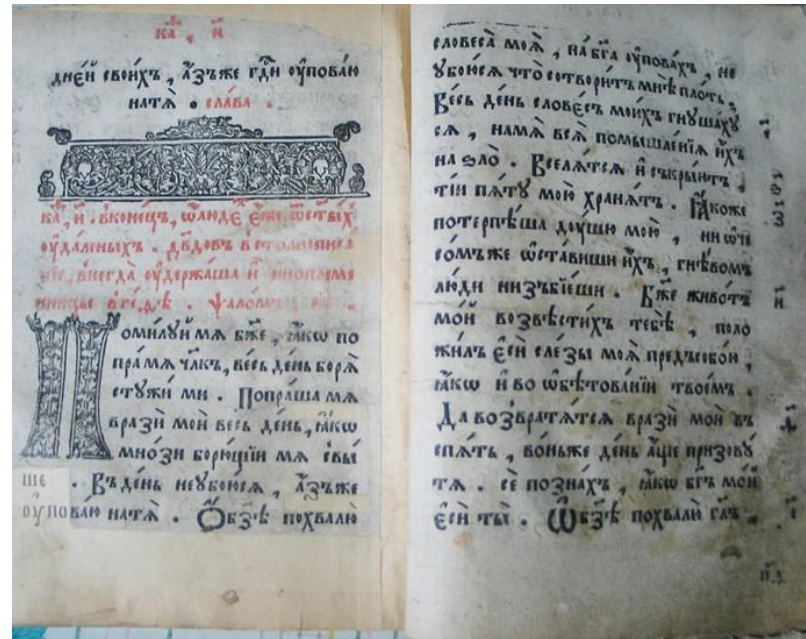 ка҃, и҆
дне́й свои́хъ, а҆́зъже гд҇и оу҆пова́ю
натѧ̀. сла́ва.
ка҃, и҆. вконе́цъ, ѡ҆лю́дехъ е҆́же ѿст҃ы́хъ
оу҆дале́ныхъ. дв҃довъ встолпописа́
нїе, внегда̀ оу҆держа́ша и҆̀ и҆нопле́ме
нницы вге́ѳѣ. ѱало́мъ
Поми́луй мѧ бж҃е, ꙗ҆́кѡ по
пра́ мѧ чл҃къ, ве́сь де́нь борѧ̀
стужи́ ми. Попра́ша мѧ
вразѝ моѝ ве́сь де́нь, ꙗ҆́кѡ
мно́зи борю́щїи мѧ свы́
ше. Въде́нь неубою́сѧ, а҆́зъже
оу҆пова́ю натѧ̀. Ѻ҆бз҃ѣ похвалю̀
словеса̀ моѧ̀, на́бг҃а оу҆пова́хъ, не
убою́сѧ что̀ сотвори́тъ мнѣ̀ пло́ть.
Ве́сь де́нь слове́съ мои́хъ гнуша́ху
сѧ, намѧ̀ всѧ̀ помышле́нїѧ и҆́хъ
на ѕло̀. Вселѧ́тсѧ и҆ съкрыю́тъ.
ті́и пѧ́ту мою̀ хранѧ́тъ. Ꙗ҆́коже
потерпѣ́ша до́ушю мою̀, ни ѡ҆че
со́мъже ѿста́виши и҆́хъ, гнѣ́вомъ
лю́ди низъбїе́ши. Бж҃е живо́тъ
мо́й возвѣсти́хъ тебѣ̀, поло
жи́лъ є҆сѝ сле́зы моѧ̀ предъсобо́ю,
ꙗ҆́кѡ и҆ во ѡ҆бѣтова́нїи твое́мъ.
Да возвратѧ́тсѧ вразѝ моѝ въ
спѧ́ть, во́ньже де́нь а҆́ще призову̀
тѧ. сѐ позна́хъ, ꙗ҆́кѡ бг҃ъ мо́й
є҆сѝ ты̀. Ѡ҆бз҃ѣ похвалю̀ гл҃ъ,